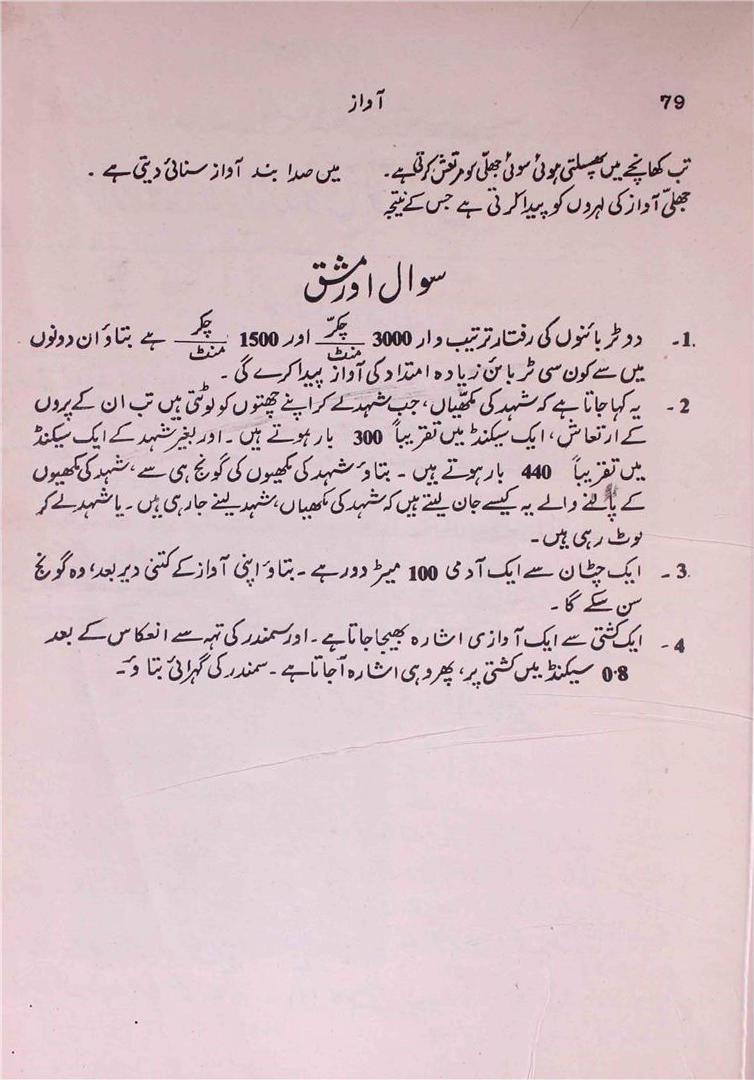 79
آواز
تب کھانچے میں پھسلتی ہوئی سوئی جھلّی کو مرتعش کرتی ہے۔
جھلّی آواز کی لہروں کو پیدا کرتی ہے جس کے نتیجہ
میں صدا بند آواز سنائی دیتی ہے۔
سوال اور مشق
1۔ دو ٹربائنوں کی رفتار ترتیب وار 3000 چکّر/منٹ اور 1500 چکر/منٹ ہے بتاؤ ان دونوں
میں سے کون سی ٹربائن زیادہ امتداد کی آواز پیدا کرے گی۔
2۔ یہ کہا جاتا ہے کہ شہد کی مکھّیاں، جب شہد لے کر اپنے چھتوں کو لوٹتی ہیں تب ان کے پروں
کے ارتعاش، ایک سیکنڈ میں تقریباً 300 بار ہوتے ہیں۔ اور بغیر شہد کے ایک سیکنڈ
میں تقریباً 440 بار ہوتے ہیں۔ بتاؤ شہد کی مکھیوں کی گونج ہی سے، شہد کی مکھیوں
کے پالنے والے یہ کیسے جان لیتے ہیں کہ شہد کی مکھیاں، شہد لینے جا رہی ہیں۔ یا شہد لے کر
لوٹ رہی ہیں۔
3۔ ایک چٹان سے ایک آدمی 100 میٹر دور ہے۔ بتاؤ اپنی آواز کے کتنی دیر بعد، وہ گونج
سن سکے گا۔
4۔ ایک کشتی سے ایک آوازی اشارہ بھیجا جاتا ہے۔ اور سمندر کی تہہ سے انعکاس کے بعد
0.8 سیکنڈ میں کشتی پر، پھر وہی اشارہ آ جاتا ہے۔ سمندر کی گہرائی بتاؤ۔